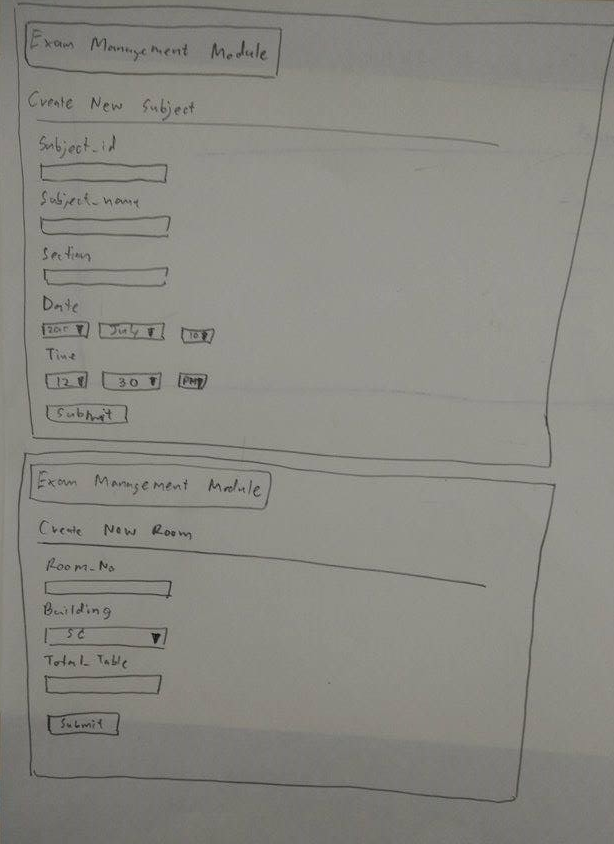 Exam Management Module
Create New Subject
Subject_id
Subject_name
Section
Date
July 10
Time
12 30 PM
Submit
Exam Management Module
Create New Room
Room_No
Building
SC
Total_Table
Submit